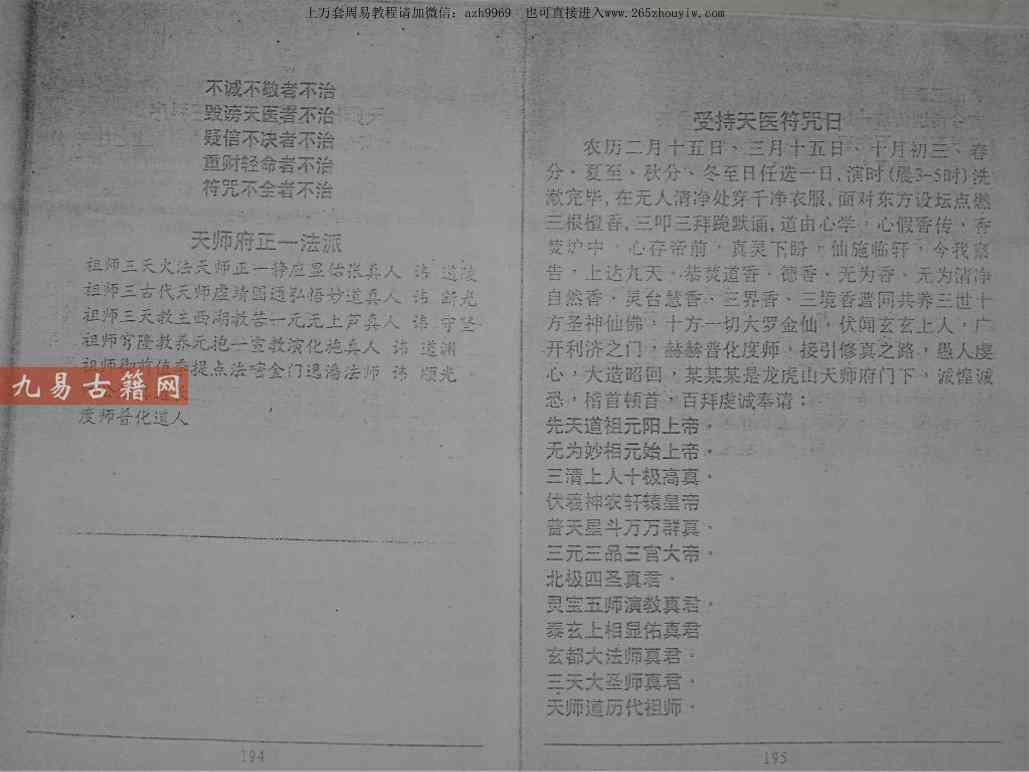 上万套周易教程请加微信：azh9969 也可直接进入www.265zhouyiw.com
不诚不敬者不治
毁谤天医者不治
疑信不决者不治
重财轻命者不治
符咒不全者不治
天师府正一法派
祖师三天火法天师正一静应显佑张真人 讳 道陵
祖师三古代天师虚靖国通弘悟妙道真人 讳
祖师三天教主西湖救苦一元无上芦真人 讳 守坚
祖师育隆教养元抱一宣教演化施真人 讳 道渊
祖师 提点法 金门 法师 讳 顺光
九易古籍网
度师普化道人
194
受持天医符咒日
农历二月十五日、三月十五日、十月初三、春
分、夏至、秋分、冬至日任选一日，演时(晨3-5时)洗
漱完毕，在无人清净处穿干净衣服，面对东方设坛点燃
三根檀香，三叩三拜跪默诵，道由心学，心假香传，香
焚炉中，心存帝前，真灵下盼，仙旆临轩，今我
告，上达九天。恭焚道香、德香、无为香、无为清净
自然香、灵台慧香、三界香、三境香 同共养三世十
方圣神仙佛、十方一切大罗金仙，伏闻玄玄上人，广
开利济之门，赫赫普化度师，接引修真之路，愚人虔
心，大造昭回，某某某是龙虎山天师府门下，诚惶诚
恐，稽首顿首，百拜虔诚奉请：
先天道祖元阳上帝。
无为妙相元始上帝。
三清上人十极高真。
伏羲神农轩辕皇帝
普天星斗万万群真、
三元三品三官大帝。
北极四圣真君。
灵宝五师演教真君。
泰玄上相显佑真君
玄都大法师真君。
三天大圣师真君。
天师道历代祖师。
195